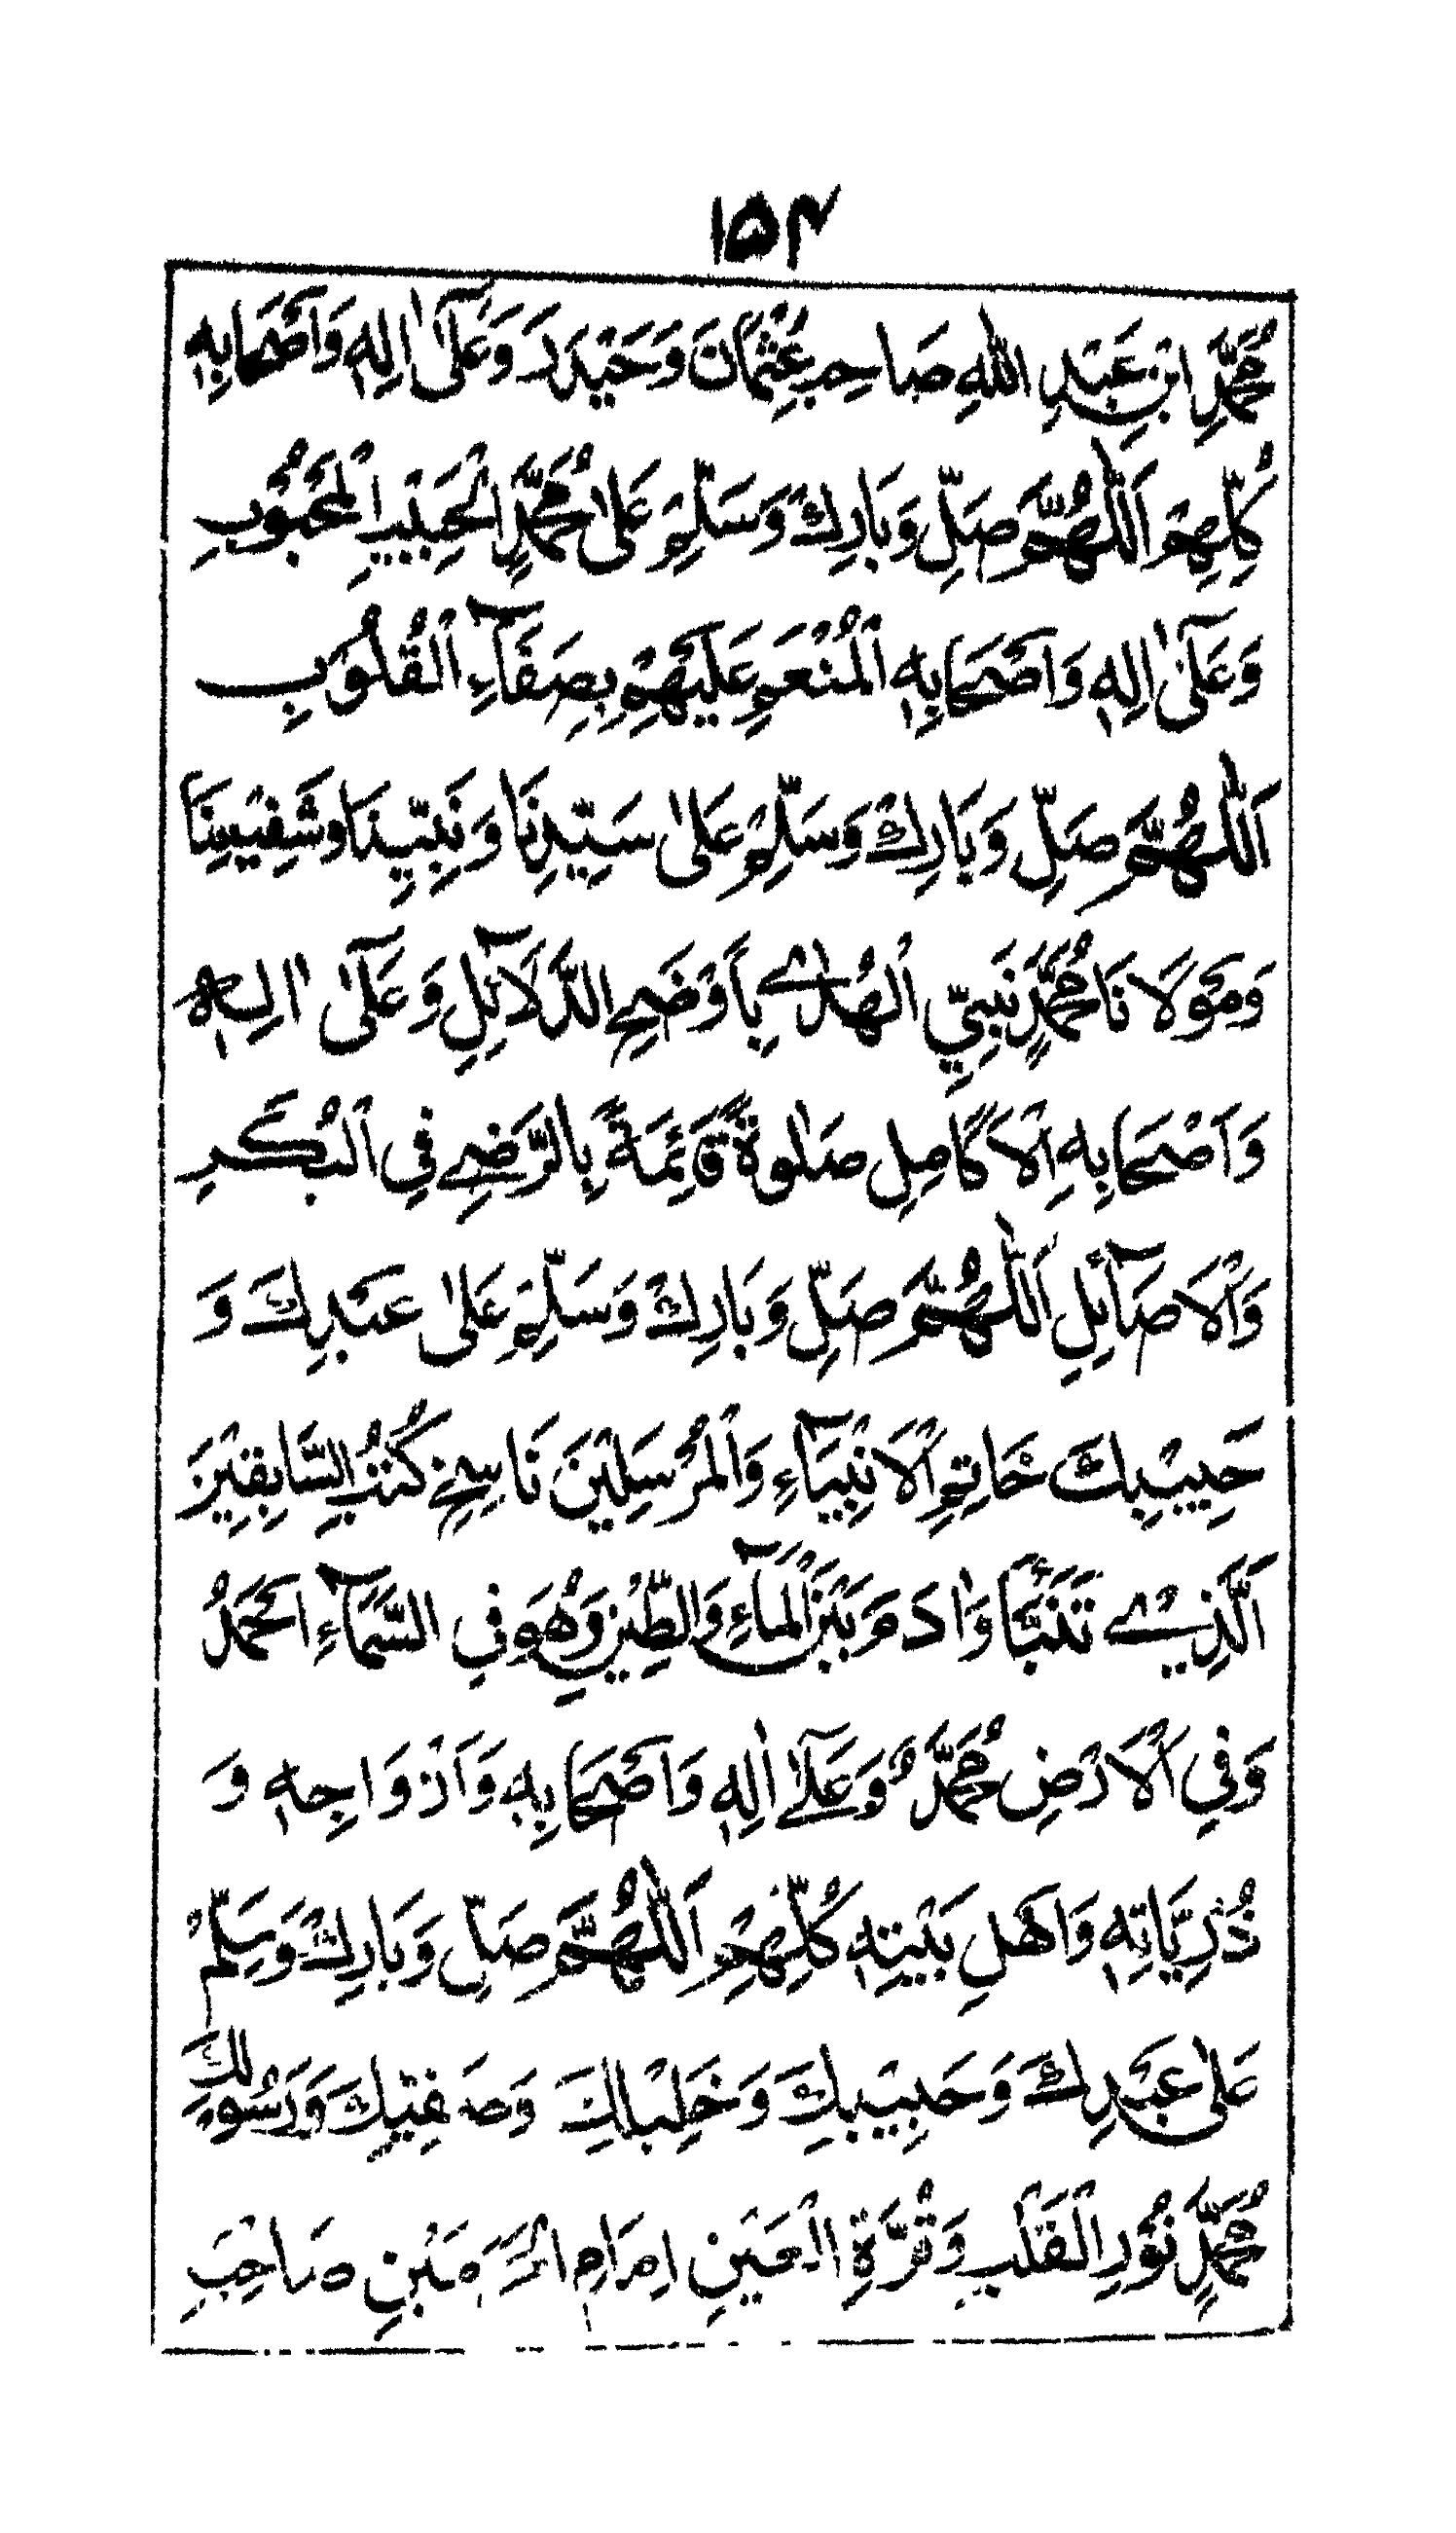 ۱۵۴
مُحَمَّدِ ابْنِ عَبْدِ اللّٰهِ صَاحِبِ عُثْمَانَ وَحَيْدَرَ وَعَلٰٓى اٰلِهٖ وَاَصْحَابِهٖ
كُلِّهِمْ اَللّٰهُمَّ صَلِّ وَبَارِكْ وَسَلِّمْ عَلٰى مُحَمَّدِ الْحَبِيْبِ الْمَحْبُوْبِ
وَعَلٰٓى اٰلِهٖ وَاَصْحَابِهٖ الْمُنْعَمِ عَلَيْهِمْ بِصِفَآءِ الْقُلُوْبِ
اَللّٰهُمَّ صَلِّ وَبَارِكْ وَسَلِّمْ عَلٰى سَيِّدِنَا وَنَبِيِّنَا وَشَفِيْعِنَا
وَمَوْلَانَا مُحَمَّدٍ نَبِيِّ الْهُدٰے بِاَوْضَحِ الدَّلَآئِلِ وَعَلٰٓى اٰلِهٖ
وَاَصْحَابِهِ الْاَكَامِلِ صَلٰوةً قَائِمَةً بِالرَّضِے فِي الْبُكَرِ
وَالْاَصَآئِلِ اَللّٰهُمَّ صَلِّ وَبَارِكْ وَسَلِّمْ عَلٰى عَبْدِكَ وَ
حَبِيْبِكَ خَاتِمِ الْاَنْبِيَآءِ وَالْمُرْسَلِيْنَ نَاسِخِ كُتُبِ السَّابِقِيْنَ
اَلَّذِيْے تَنَبَّأَ وَاٰدَمَ بَيْنَ الْمَآءِ وَالطِّيْنِ وَهُوَ فِي السَّمَآءِ اَحْمَدُ
وَفِي الْاَرْضِ مُحَمَّدٌ وَعَلٰٓے اٰلِهٖ وَاَصْحَابِهٖ وَاَزْوَاجِهٖ وَ
ذُرِّيَّاتِهٖ وَاَهْلِ بَيْتِهٖ كُلِّهِمْ اَللّٰهُمَّ صَلِّ وَبَارِكْ وَسَلِّمْ
عَلٰى عَبْدِكَ وَحَبِيْبِكَ وَخَلِيْلِكَ وَصَفِيِّكَ وَرَسُوْلِكَ
مُحَمَّدٍ نُوْرِ الْقَلْبِ وَقُرَّةِ الْعَيْنِ اِمَامِ الْحَرَمَيْنِ صَاحِبِ